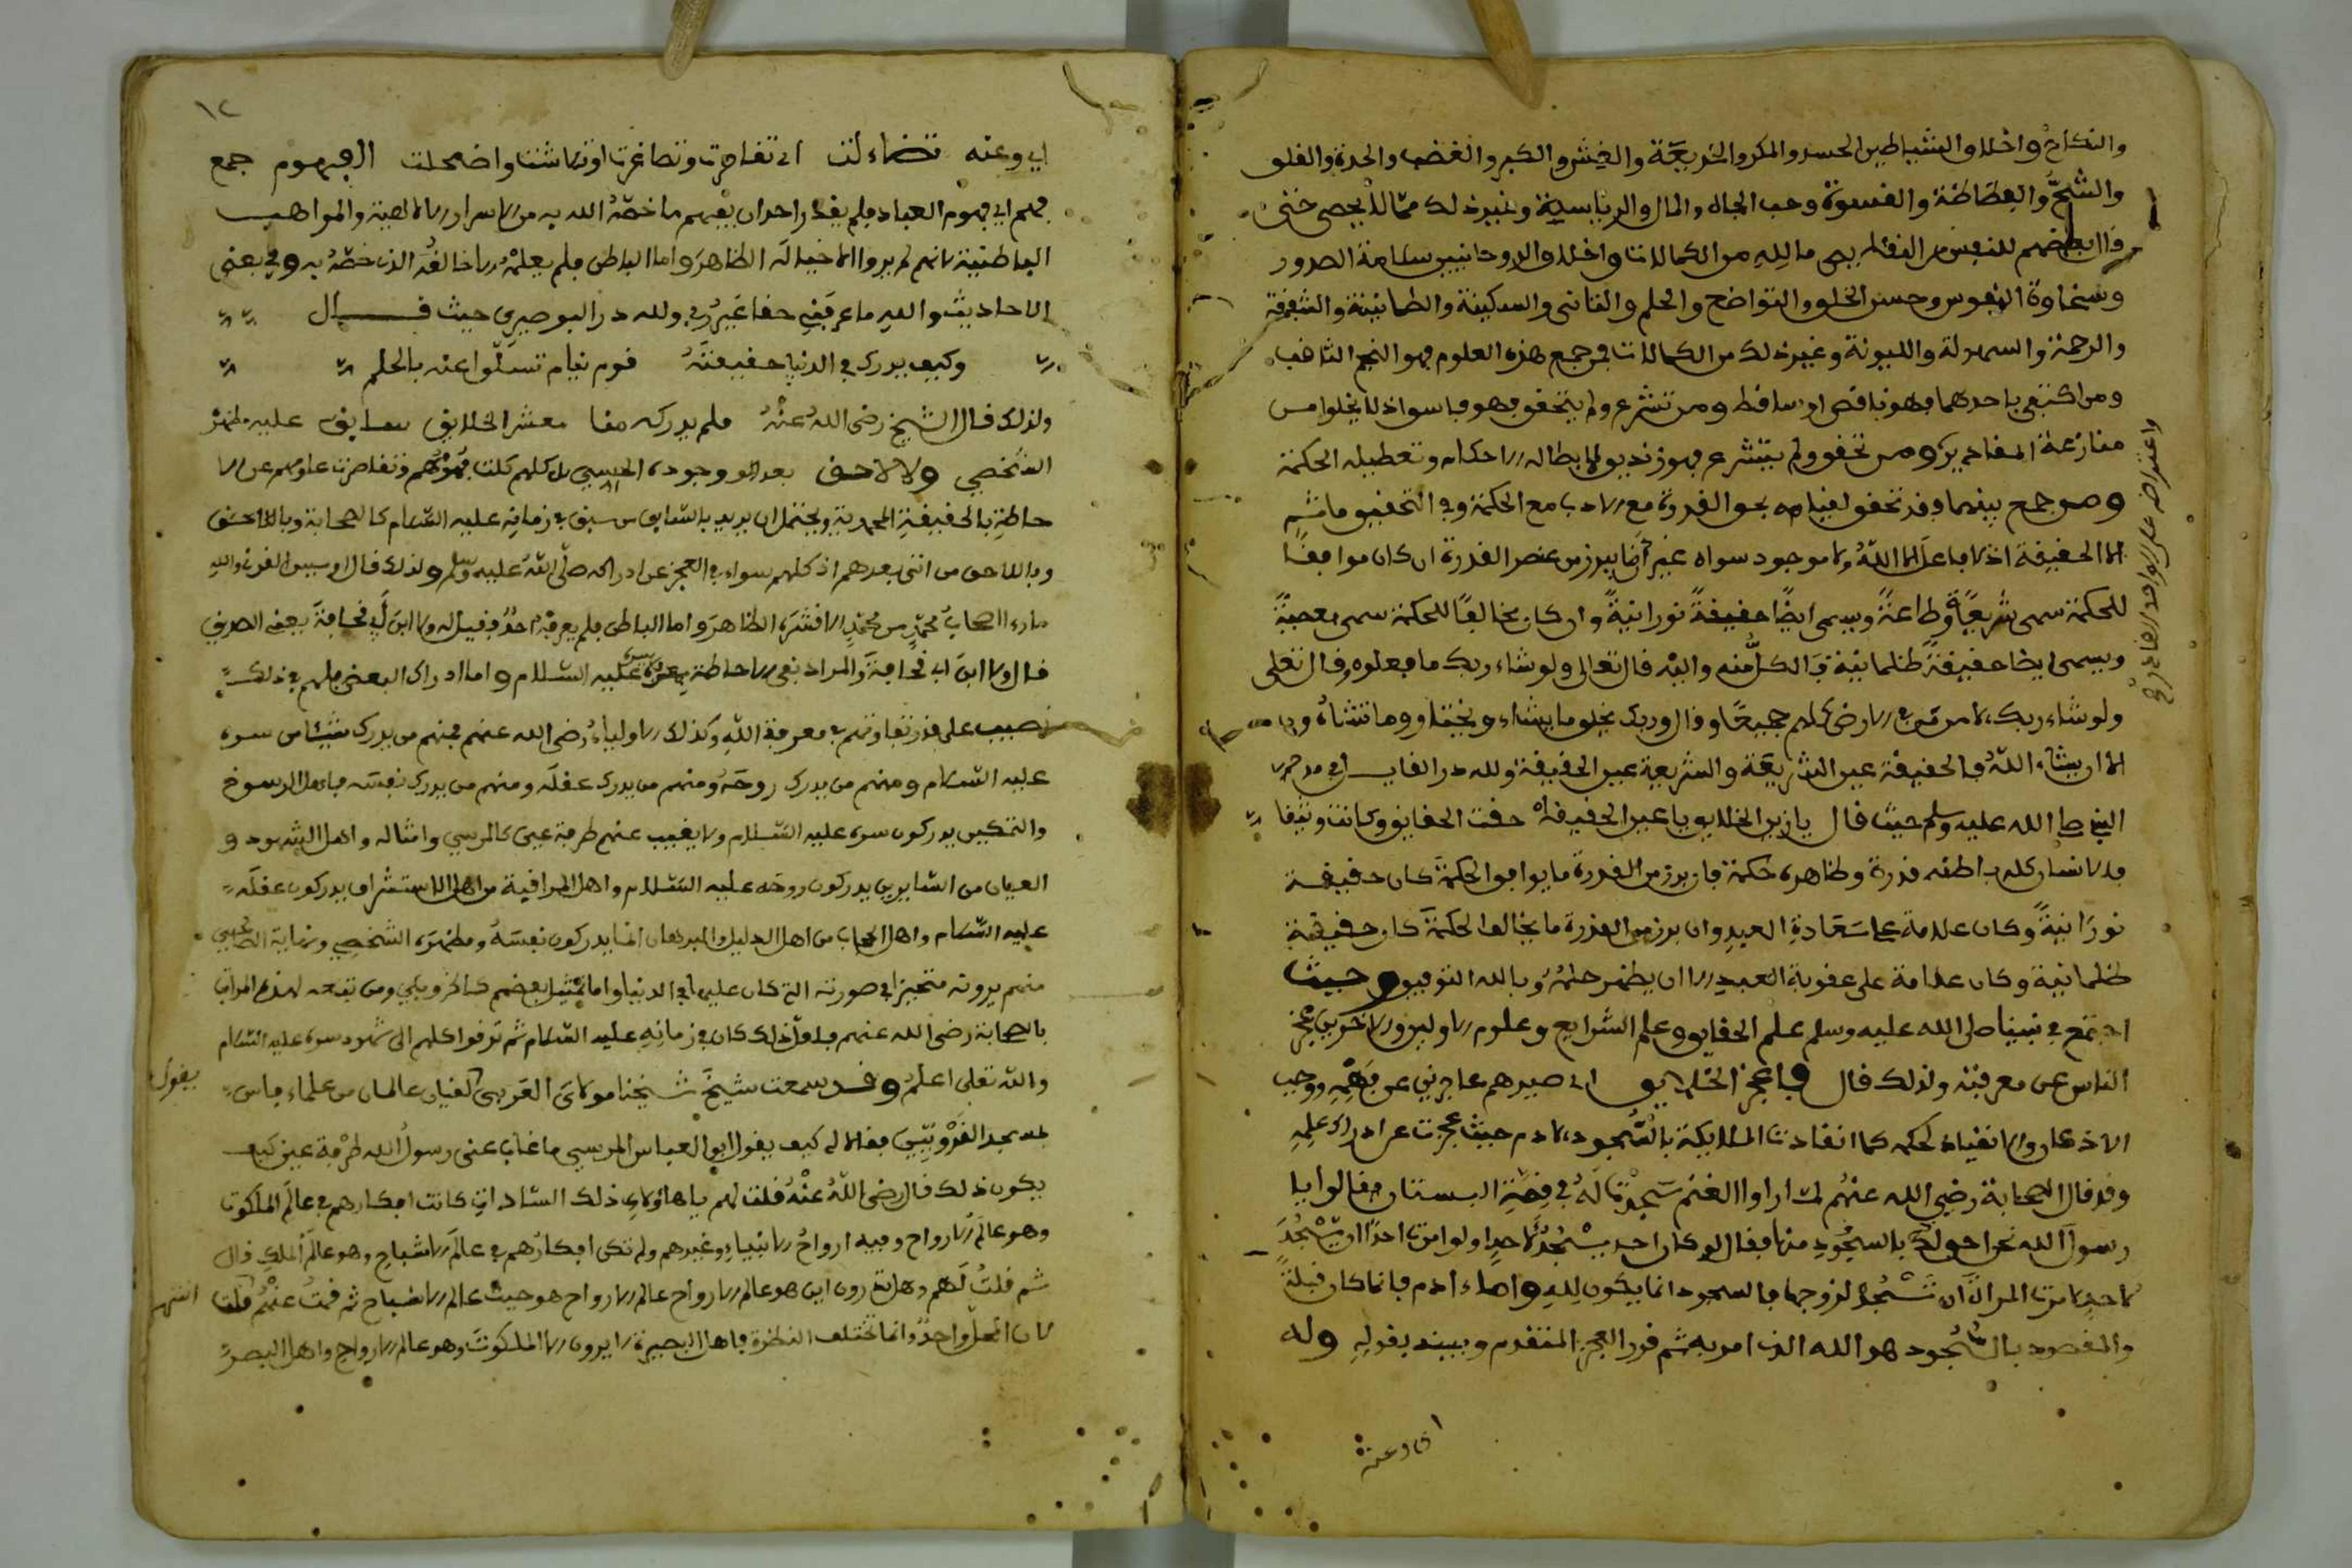 والنكاح واخلاق الشياطين الحسد والمكر والخديعة والغش والكبر والغضب والحدة والقلق
والشح والفظاظة والقسوة وحب الجاه والمال والرياسة وغير ذلك مما لا يحصى حتى
قال بعضهم للنفس من النقائص ما لله من الكمالات واخلاق الروحانيين سلامة الصدور
وسخاوة النفوس وحسن الخلق والتواضع والحلم والتانى والسكينة والطمانينة والشفقة
والرحمة والسهولة والليونة وغير ذلك من الكمالات فمن جمع هذه العلوم فهو النجم الثاقب
ومن اكتفى باحدهما فهو ناقص او ساقط ومن تشرع ولم يتحقق فهو فاسق اذ لا يخلوا من
منازعة المقادير ومن تحقق ولم يتشرع فهو زنديق لابطاله الاحكام وتعطيله الحكمة
ومن جمع بينهما فقد تحقق لقيامه بحق القدرة مع الادب مع الحكمة وفي التحقيق ما ثم
الا الحقيقة اذ لا فاعل الا الله ولا موجود سواه غير ان ما يبرز من عنصر القدرة ان كان موافقا
للحكمة سمى شريعة وطاعة ويسمى ايضا حقيقة نورانية وان كان مخالفا للحكمة سمى معصية
ويسمى ايضا حقيقة ظلمانية فالكل منه واليه قال تعالى ولو شاء ربك ما فعلوه وقال تعلى
ولو شاء ربك لامن من في الارض كلهم جميعا وقال وربك يخلق ما يشاء ويختار وما تشاءون
الا ان يشاء الله فالحقيقة عين الشريعة والشريعة عين الحقيقة ولله در القايل في مدح
النبي صلى الله عليه وسلم حيث قال يا زين الخلايق يا عين الحقيقة حقت الحقايق وكانت وثيقا
فالانسان كله باطنه قدرة وظاهره حكمة فان برز من القدرة ما يوافق الحكمة كان حقيقة
نورانية وكان علامة على سعادة العبد وان برز من القدرة ما يخالف الحكمة كان حقيقة
ظلمانية وكان علامة على عقوبة العبد الا ان يظهر حلمه وبالله التوفيق وحيث
اجتمع في نبينا صلى الله عليه وسلم علم الحقايق وعلم الشرايع وعلوم الاولين والاخرين عجز
الناس عن معرفته ولذلك قال فاعجز الخلايق اي صيرهم عاجزين عن فهمه ووجب
الاذعان والانقياد لحكمه كما انقادت الملايكة بالسجود لادم حيث عجزت عن ادراك علمه
وقد قال الصحابة رضي الله عنهم لما راوا الغنم سجدت له في قصة البستان فقالوا يا
رسول الله نحن احق لك بالسجود منها فقال لو كان احد يسجد لاحد او لو امرت احدا ان يسجد
لاحد لامرت المراة ان تسجد لزوجها فالسجود انما يكون لله واما ادم فانما كان قبلة
والمقصود بالسجود هو الله الذي امر به ثم قرر العجز المتقدم وبينه بقوله وله
واعتراضه على الواحد القادر
اي وعنه تضاءلت اي تقاصرت وتصاغرت او تلاشت واضمحلت الفهوم جمع
فهم اي فهوم العباد فلم يقدر احد ان يفهم ما خصه الله به من الاسرار الالهية والمواهب
الباطنية لانهم لم يروا الا خياله الظاهر واما الباطن فلم يعلمه الا خالقه الذي خصه به وفي بعض
الاحاديث والله ما عرفني حقا غير ربي ولله در البوصيري حيث قال
وكيف يدرك في الدنيا حقيقته قوم نيام تسلوا عنه بالحلم
ولذلك قال الشيخ رضي الله عنه فلم يدركه منا معشر الخلايق سابق عليه مظهر
الشخصي ولا لاحق بعد وجوده الحسي بل كلهم كلت فهومهم وتقاصرت علومهم عن الا
حاطة بالحقيقة المحمدية ويحتمل ان يريد بالسابق من سبق في زمانه عليه السلام كالصحابة وباللاحق
وباللاحق من اتى بعدهم اذ كلهم سواء في العجز عن ادراكه صلى الله عليه وسلم ولذلك قال اويس القرني والله
ما راى اصحاب محمد من محمد الا قشره الظاهر واما الباطن فلم يعرفه احد فقيل له ولا ابن ابي قحافة يعني الصديق
قال ولا ابن ابي قحافة والمراد نفي الاحاطة بمعرفة سره عليه السلام واما ادراك البعض فلهم في ذلك
نصيب على قدر تفاوتهم في معرفة الله وكذلك الاولياء رضي الله عنهم فمنهم من يدرك شيئا من سره
عليه السلام ومنهم من يدرك روحه ومنهم من يدرك عقله ومنهم من يدرك نفسه فاهل الرسوخ
والتمكين يدركون سره عليه السلام ولا يغيب عنهم طرفة عين كالمرسي وامثاله واهل الشهود و
العيان من السايرين يدركون روحه عليه السلام واهل المراقبة من اهل الاستشراف يدركون عقله
عليه السلام واهل الحجاب من اهل الدليل والبرهان انما يدركون نفسه ومظهره الشخصي ونهاية
منهم يرونه متحيزا في صورته التي كان عليها في الدنيا واما تمثيل بعضهم كالخروبي ومن تبعه لهذه المراتب
بالصحابة رضي الله عنهم فلاول ذلك كان في زمانه عليه السلام ثم ترقوا كلهم الى شهود سره عليه السلام
والله تعلى اعلم وقد سمعت شيخ شيخنا مولاي العربي يقول لقيان عالمان من علماء فاس
بمسجد القرويين فقالا له كيف يقول ابو العباس المرسي ما غاب عنى رسول الله طرفة عين كيف
يكون ذلك قال رضي الله عنه فقلت لهم يا هاؤلاء ذلك السادات كانت افكارهم في عالم الملكوت
وهو عالم الارواح وفيه ارواح الانبياء وغيرهم ولم تكن افكارهم في عالم الاشباح وهو عالم الملك قال
ثم قلت لهم وهل تدرون اين هو عالم الارواح عالم الارواح هو حيث عالم الاشباح ثم قمت عنهم انتهى قلت
لان المحل واحد وانما تختلف النظرة فاهل البصيرة لا يرون الا الملكوت وهو عالم الارواح واهل البصر